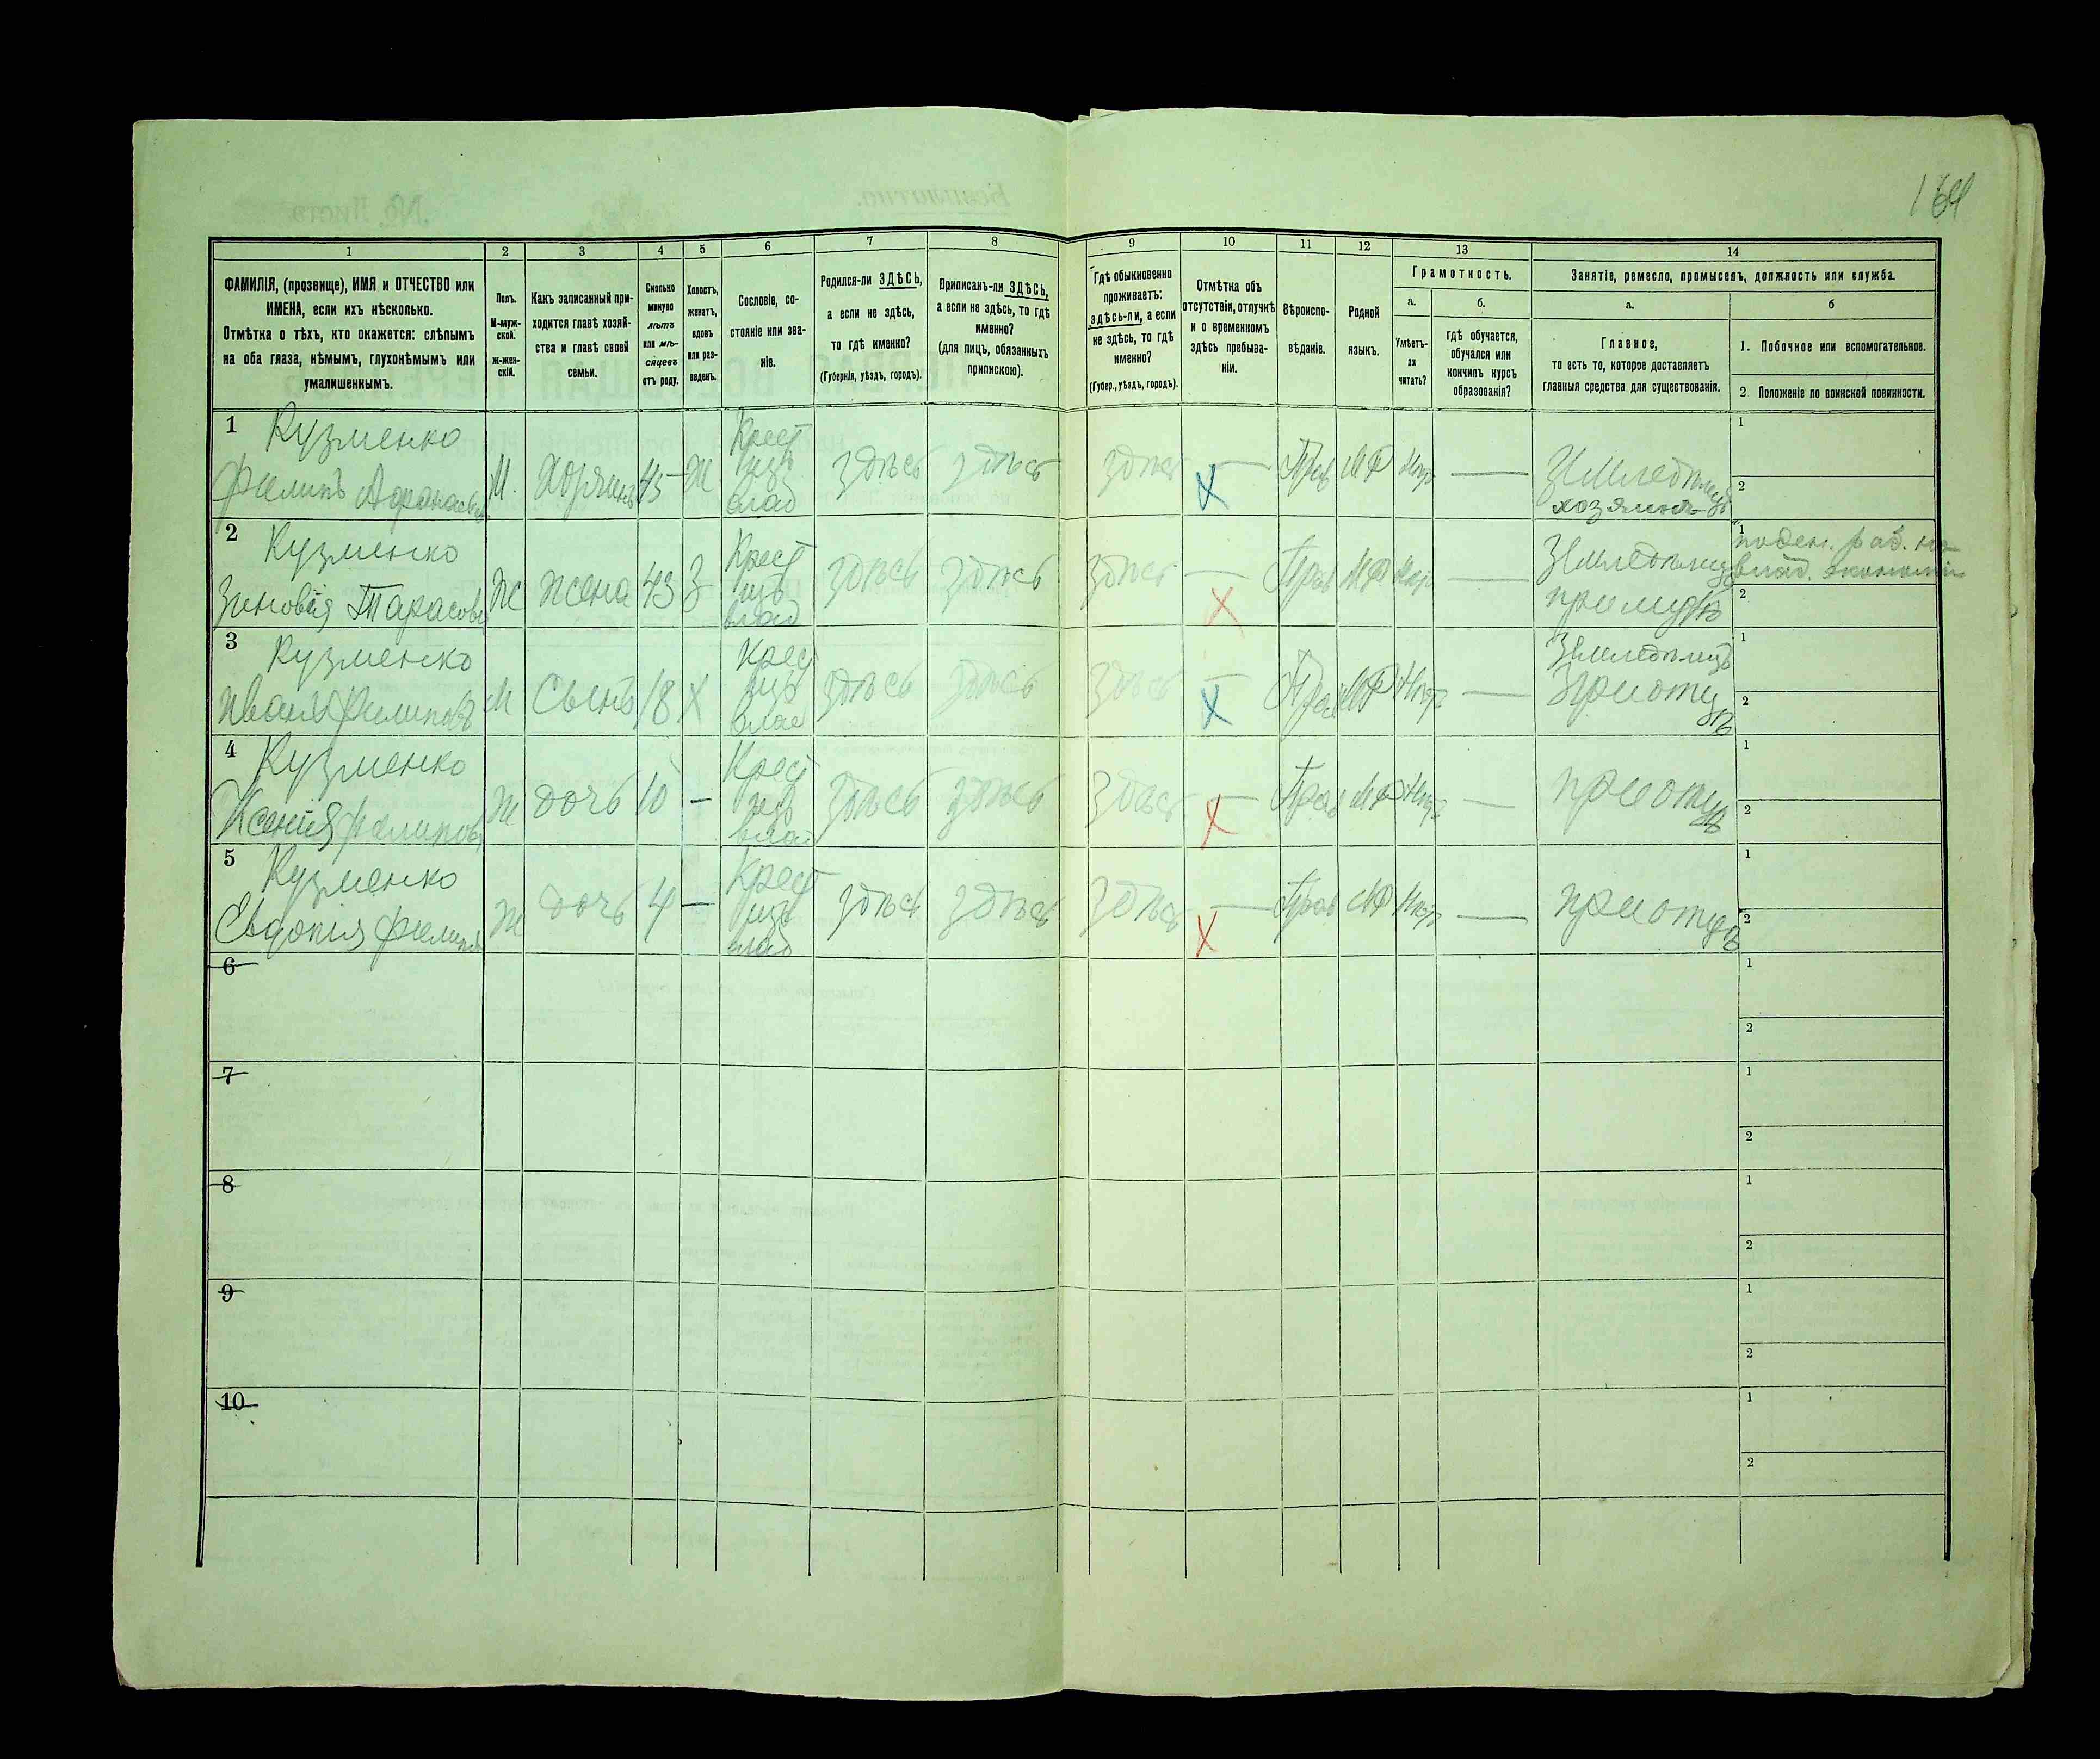 164
1
2
3
4
5
6
7
8
9
10
11
12
13
14
ФАМИЛІЯ, (прозвище), ИМЯ и ОТЧЕСТВО или
ИМЕНА, если ихъ нѣсколько.
Отмѣтка о тѣхъ, кто окажется: слѣпымъ
на оба глаза, нѣмымъ, глухонѣмымъ или
умалишеннымъ.
Полъ.
М-муж-
ской.
ж-жен-
скій.
Какъ записанный при-
ходится главѣ хозяй-
ства и главѣ своей
семьи.
Сколько
минуло
лѣтъ
или мѣ-
сяцевъ
отъ роду.
Холостъ,
женатъ,
вдовъ
или раз-
веденъ.
Сословіе, со-
стояніе или зва-
ніе.
Родился-ли ЗДѢСЬ,
а если не здѣсь,
то гдѣ именно?
(Губернія, уѣздъ, городъ).
Приписанъ-ли ЗДѢСЬ,
а если не здѣсь, то гдѣ
именно?
(для лицъ, обязанныхъ
припискою).
Гдѣ обыкновенно
проживаетъ:
здѣсь-ли, а если
не здѣсь, то гдѣ
именно?
(Губер., уѣздъ, городъ).
Отмѣтка объ
отсутствіи, отлучкѣ
и о временномъ
здѣсь пребыва-
ніи.
Вѣроиспо-
вѣданіе.
Родной
языкъ.
Грамотность.
а.
Умѣетъ-
ли
читать?
б.
гдѣ обучается,
обучался или
кончилъ курсъ
образованія?
Занятіе, ремесло, промыселъ, должность или служба.
а.
Главное,
то есть то, которое доставляетъ
главныя средства для существованія.
б
1. Побочное или вспомогательное.
2. Положеніе по воинской повинности.
1 Кузменко
Филипъ Афанасьев
М. Хозяинъ 45 Ж
Крест
изъ
влад
здѣсь здѣсь здѣсь — Прав МР Негр —
Земледѣлецъ
хозяинъ
1
2
2 Кузменко
Зиновія Тарасов
Ж жена 43 З
Крест
изъ
влад
здѣсь здѣсь здѣсь — Прав МР Негр —
Земледѣлец
при мужѣ
1 поден. раб. на
влад. экономіи
2
3 Кузменко
Иванъ Филиповъ
М Сынъ 18 Х
Крес
изъ
влад
здѣсь здѣсь здѣсь — Прав МР Негр —
Земледѣлецъ
При отцѣ
1
2
4 Кузменко
Ксенія Филипов
Ж дочь 10 —
Крест
изъ
влад
здѣсь здѣсь здѣсь — Прав МР Негр —
при отцѣ
1
2
5 Кузменко
Евдокія Филипов
Ж дочь 4 —
Крест
изъ
влад
здѣсь здѣсь здѣсь — Прав МР Негр —
при отцѣ
1
2
6
1
2
7
1
2
8
1
2
9
1
2
10
1
2